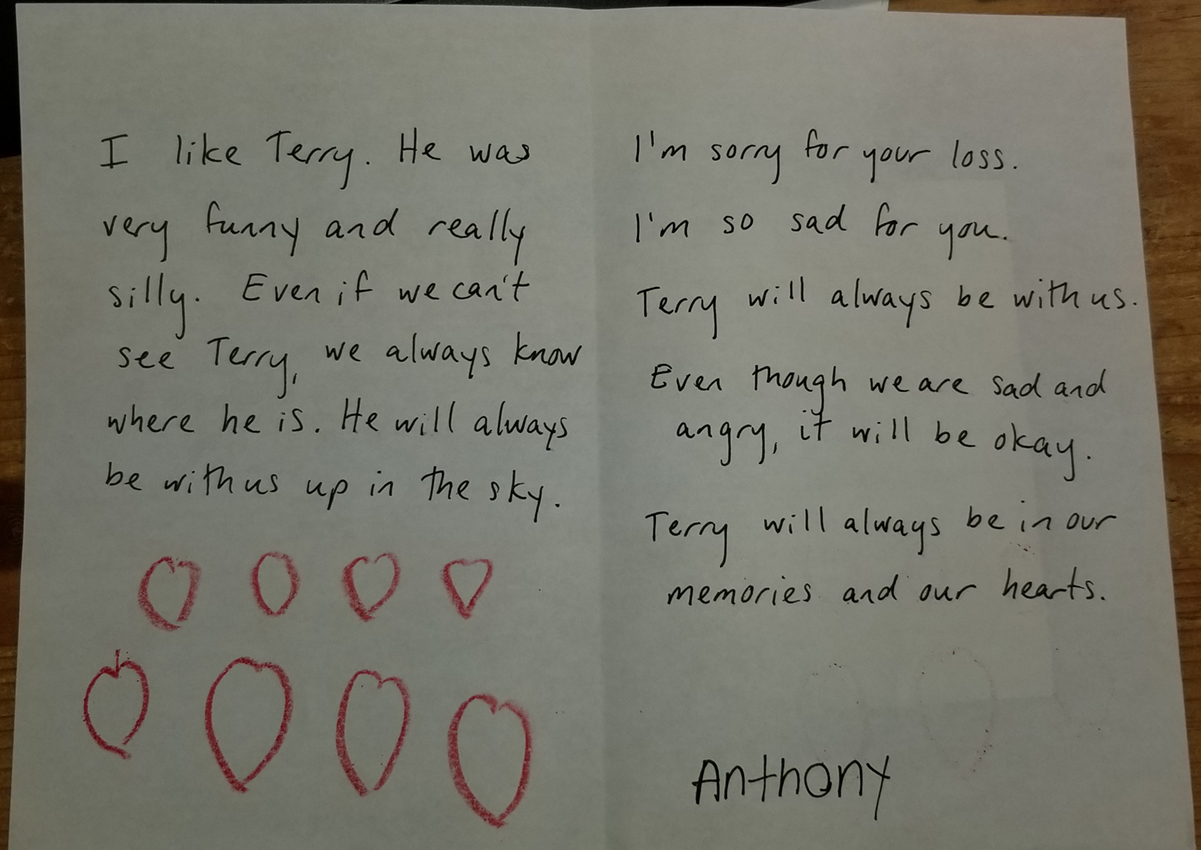 I like Terry. He was
very funny and really
silly. Even if we can't
see Terry, we always know
where he is. He will always
be with us up in the sky.
I'm sorry for your loss.
I'm so sad for you.
Terry will always be with us.
Even though we are sad and
angry, it will be okay.
Terry will always be in our
memories and our hearts.
Anthony